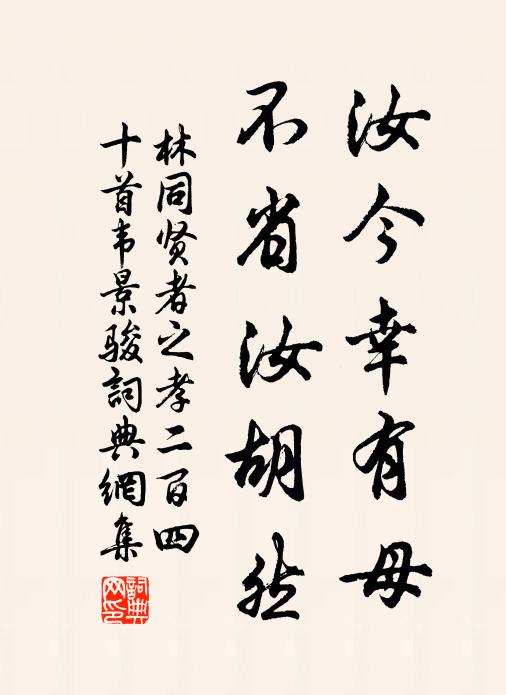 汝今幸有母
不省汝胡然
林同贤者之孝二百四
十首韦景骏詞典網集
詞典网印